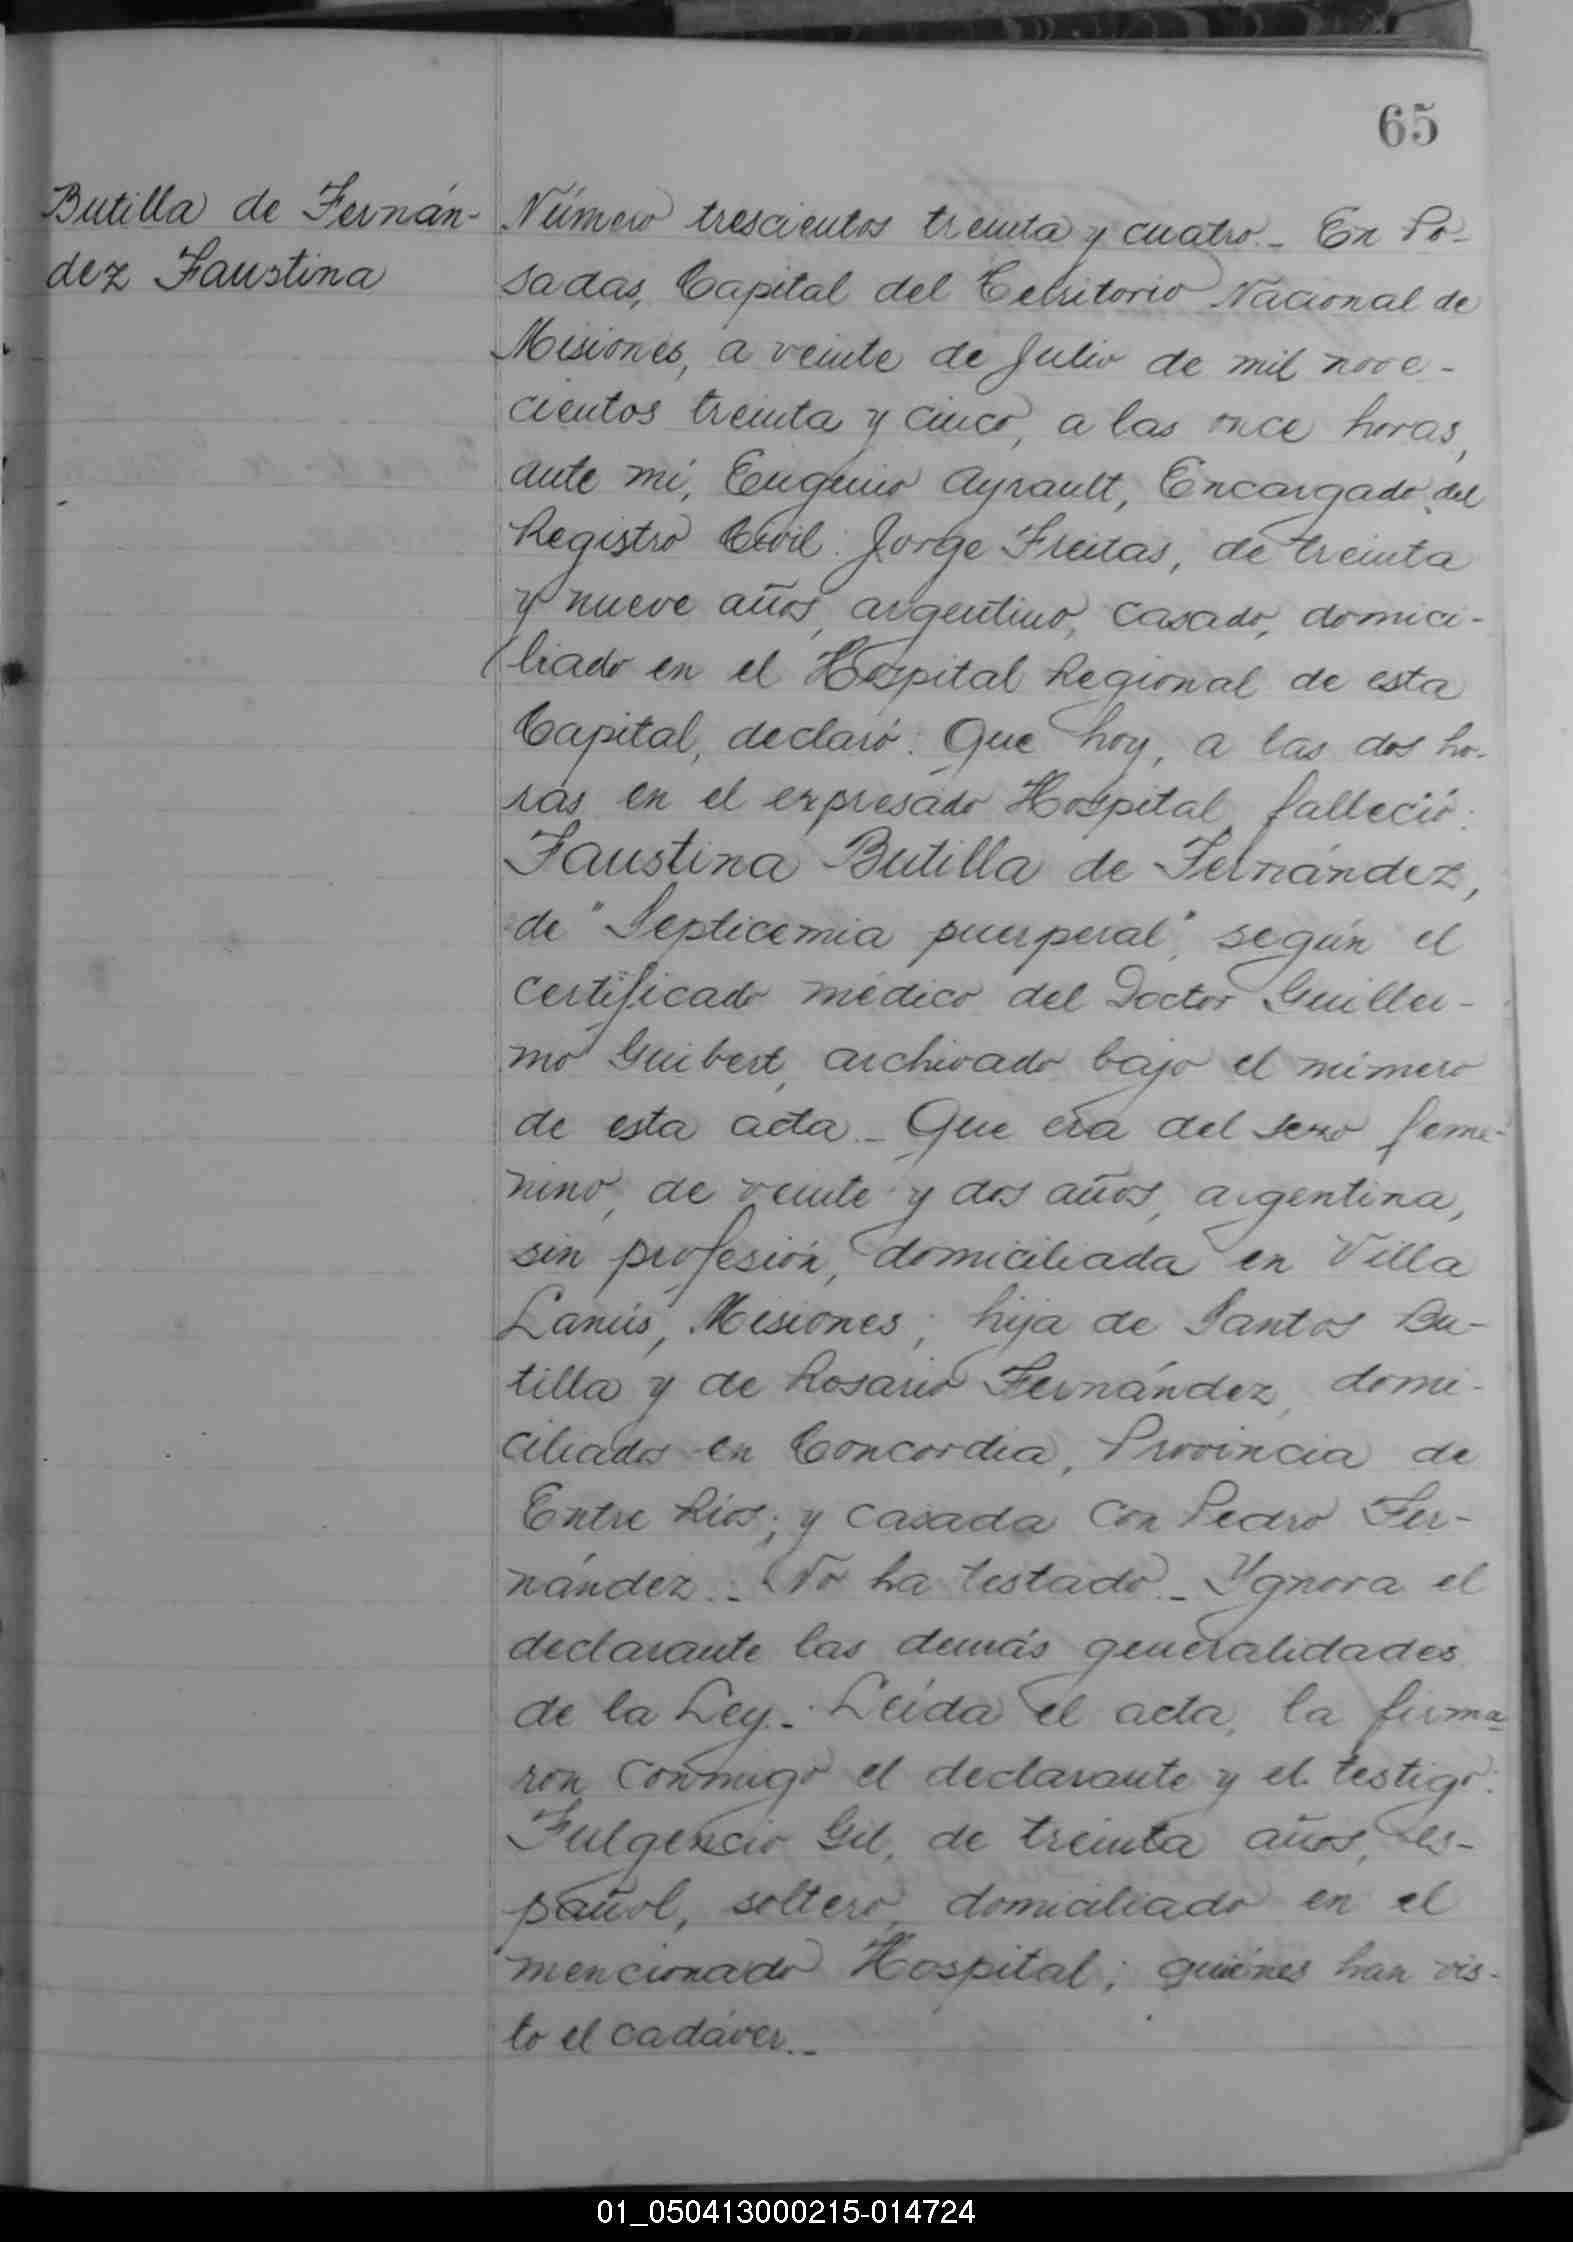 65
Butilla de Fernán-
dez Faustina
Número trescientos treinta y cuatro.- En Po-
sadas, Capital del Territorio Nacional de
Misiones, a veinte de Julio de mil nove-
cientos treinta y cinco, a las once horas,
ante mí, Eugenio Ayrault, Encargado del
Registro Civil: Jorge Freitas, de treinta
y nueve años, argentino, casado, domici-
liado en el Hospital Regional de esta
Capital, declaró: Que hoy, a las dos ho-
ras en el expresado Hospital falleció:
Faustina Butilla de Fernández,
de "Septicemia puerperal", según el
certificado médico del Doctor Guiller-
mo Guibert, archivado bajo el número
de esta acta.- Que era del sexo feme-
nino, de veinte y dos años, argentina,
sin profesión, domiciliada en Villa
Lanús, Misiones; hija de Santos Bu-
tilla y de Rosario Fernández, domi-
ciliados en Concordia, Provincia de
Entre Ríos; y casada con Pedro Fer-
nández.- No ha testado.- Ygnora el
declarante las demás generalidades
de la Ley.- Leída el acta, la firma-
ron conmigo el declarante y el testigo:
Fulgencio Gil, de treinta años, es-
pañol, soltero, domiciliado en el
mencionado Hospital; quiénes han vis-
to el cadáver.-
01_050413000215-014724